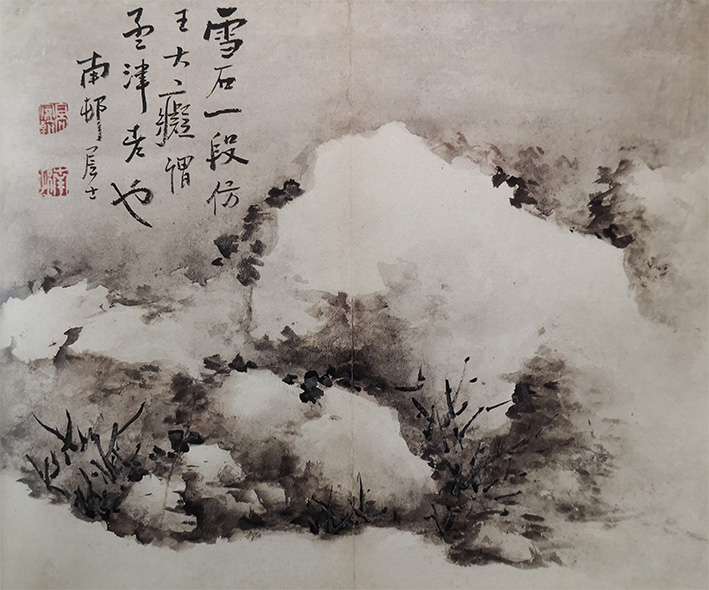 雪石一段仿
王大癡謂
孟津老也
南邨居士